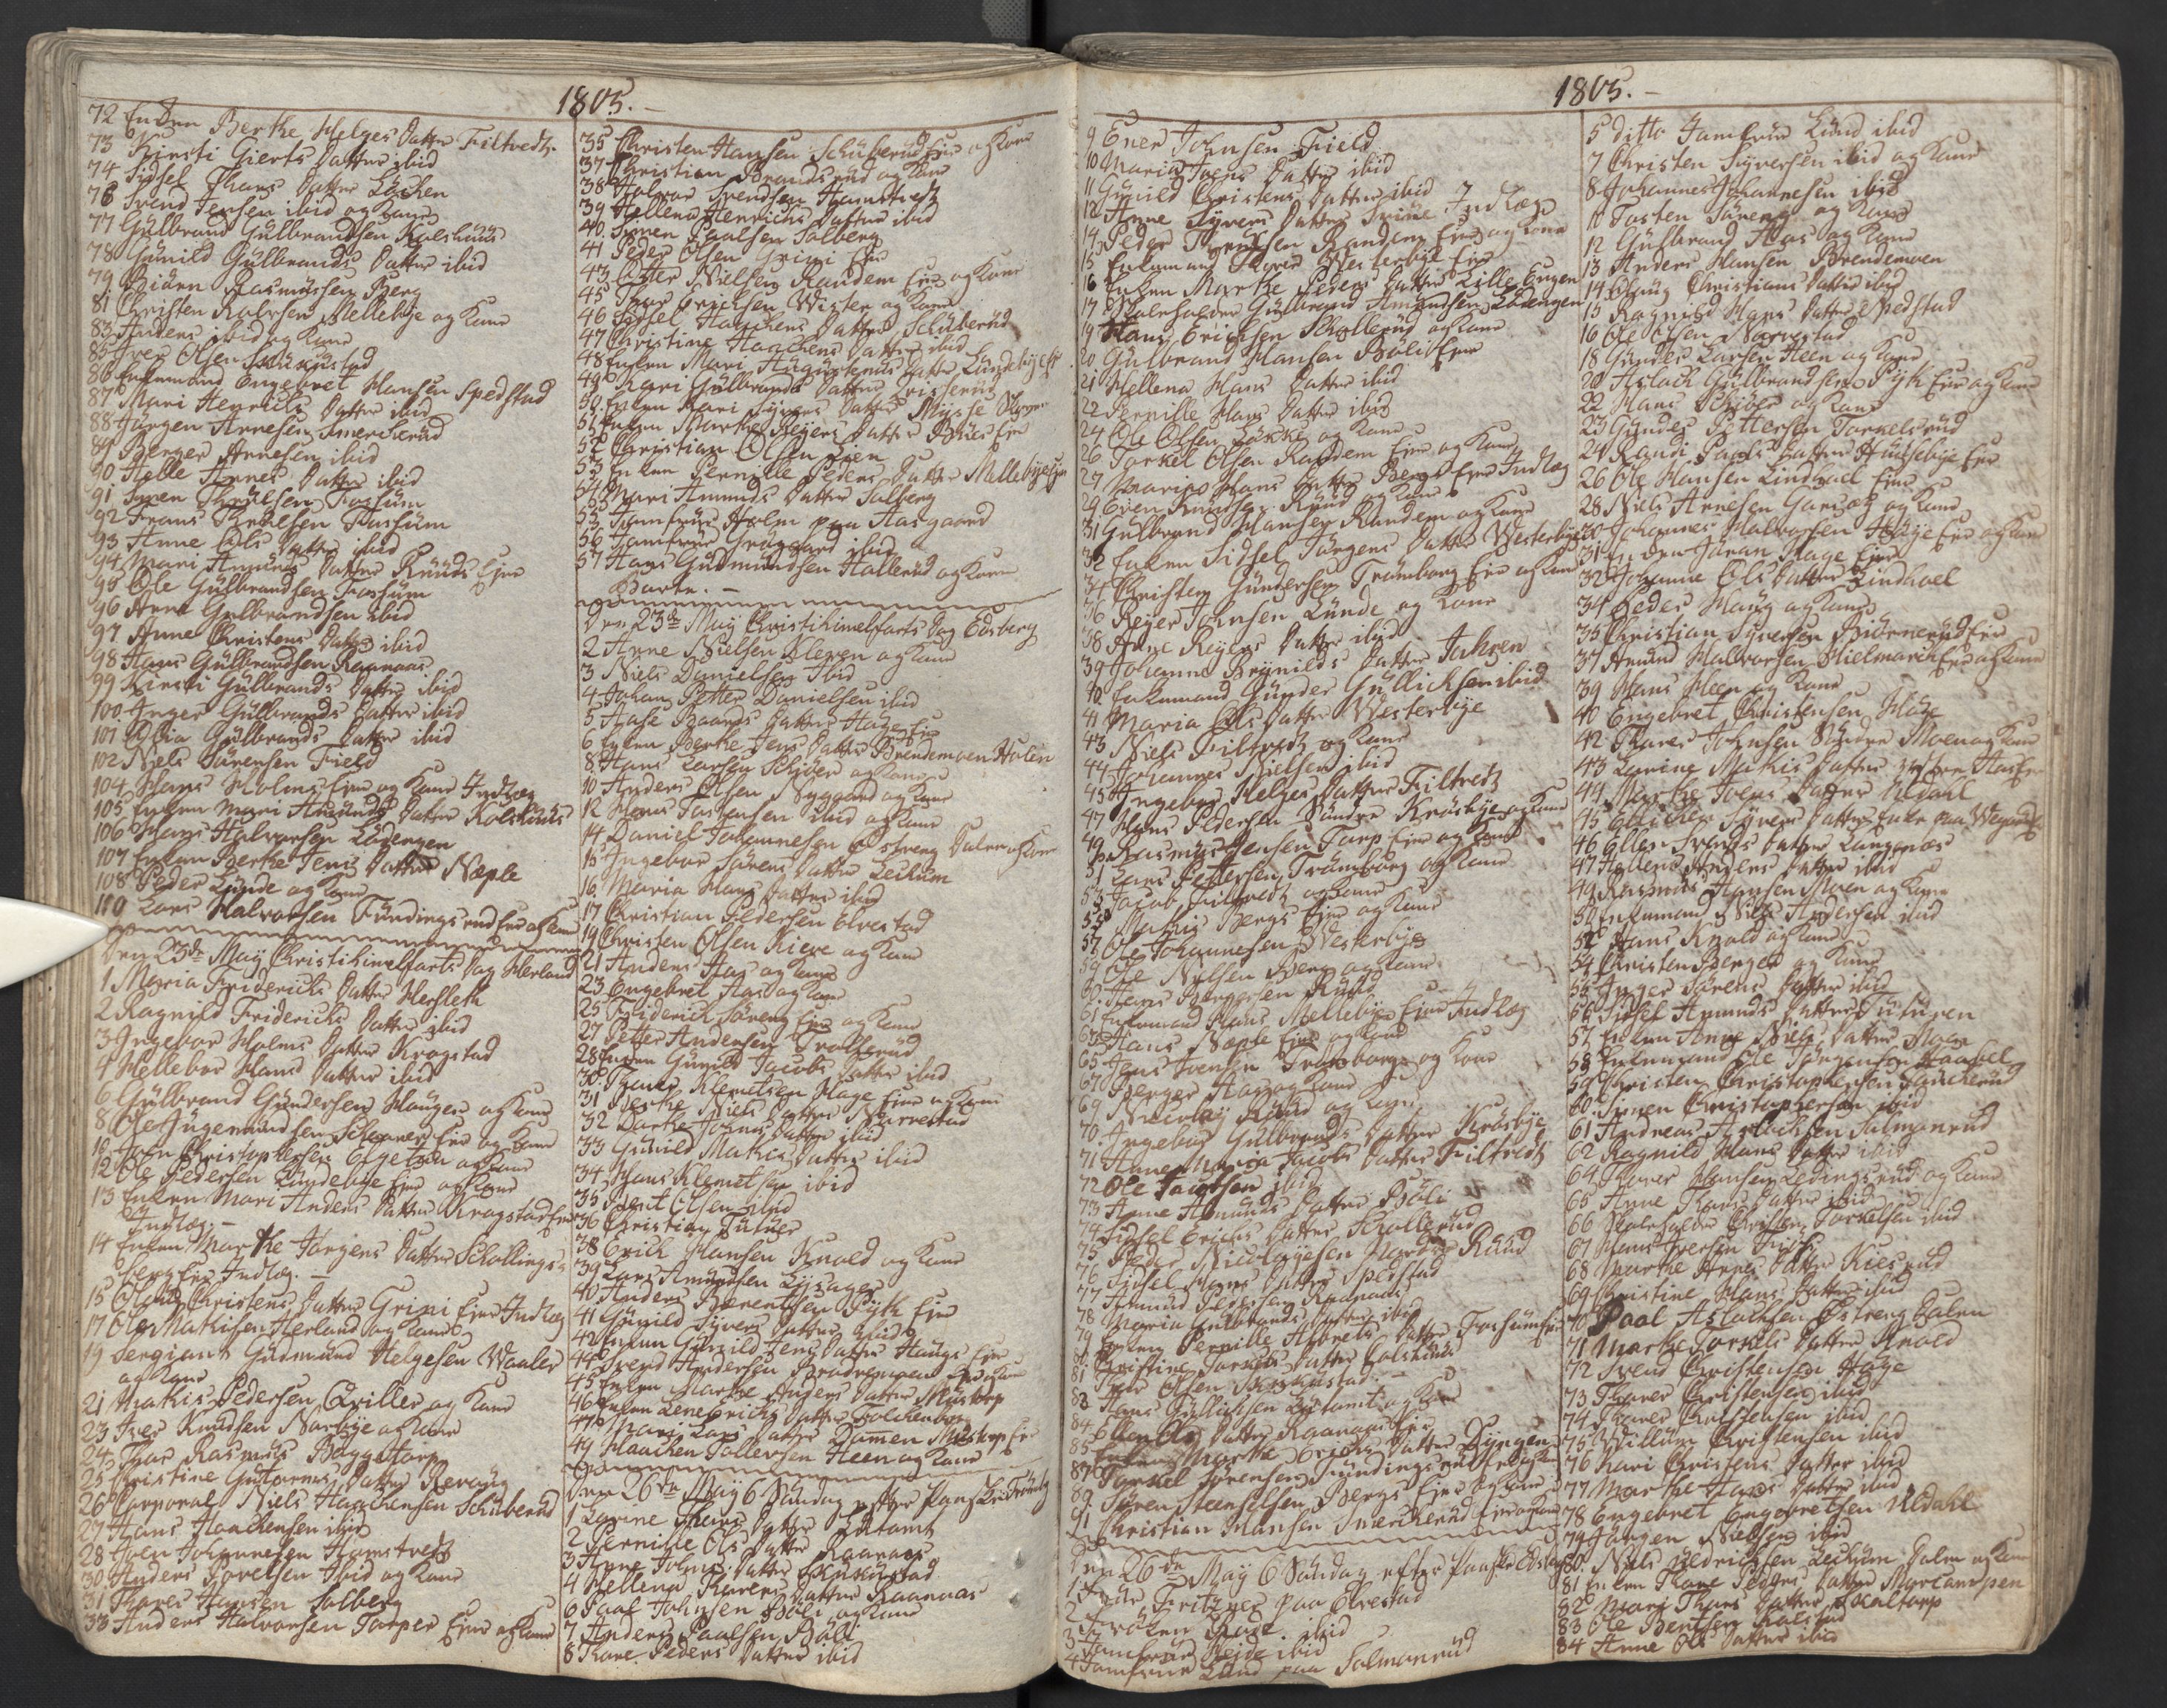 1805.
72 Enken Berthe Helges Datter Filtvedt
73 Kirsti Gierts Datter ibid
74 Sidsel Thans Datter Løcken
76 Svend Jensen ibid og Kone
77 Gulbrand Gulbrandsen Kolshuus
78 Gunild Gulbrands Datter ibid
79 Biørn Rasmussen Berg
81 Christen Mellebye og Kone
83 Anders ibid og Kone
85 Iver Olsen
86 Enkemand Engebret Hansen Spedstad
87 Mari Henrichs Datter ibid
88 Jørgen Arnesen Smerckerud
89 Berger Arnesen ibid
90 Helle Arnes Datter ibid
91 Simen Fossum
92 Frans Fossum
93 Anne Ols Datter ibid
94 Mari Amunds Datter Ruuds Eje
95 Ole Gulbrandsen Fossum
96 Arne Gulbrandsen ibid
97 Anne Christens Datter ibid
98 Hans Gulbrandsen Raanaas
99 Kirsti Gulbrands Datter ibid
100 Inger Gulbrands Datter ibid
101 Gulbrands Datter ibid
102 Niels Sørensen Field
104 Hans Holms Eje og Kone Indlæg
105 Enken Mari Amunds Datter Kolshuus
106 Hans Halvorsen Løvengen
107 Enken Berthe Jens Datter Næple
108 Peder Lunde og Kone
110 Lars Halvorsen Tundingsrud Eje og Kone
Den 23de Maÿ Christi Himelfarts Dag Herland
1 Maria Friderichs Datter Hersleth
2 Ragnild Friderichs Datter ibid
3 Ingebor Holms Datter Krogstad
4 Hellebor Hans Datter ibid
6 Gulbrand Gundersen Hauger og Kone
8 Ole Ingemundsen Eje og Kone
10 John Christophersen og Kone
12 Ole Pedersen Lundebye Eje og Kone
13 Enken Mari Anders Datter Krogstad Eje
Indlæg.
14 Enken Marthe Jørgens Datter Schollings=
berg Eje Indlæg.
15 Christens Datter Grimi Eje Indlæg
17 Ole Mathisen Herland og Kone
19 Sergiant Gudmund Helgesen Waaler
og Kone
21 Mathis Pedersen Qviller og Kone
23 Iver Knudsen Norbye og Kone
24 Thor Rasmus Baggetorp
25 Christine Guttorms Datter Revoug
26 Corporal Niels Haachensen Schuberud
27 Hans Haachensen ibid
28 Iver Johannesen Hamstvedt
30 Anders ibid og Kone
31 Thorer Hansen Solberg
33 Anders Halvorsen Torper Eje og Kone
35 Christen Hansen Schuberud Eje og Kone
37 Christian Brandsrud og Kone
38 Halvor Svendsen Hamstvedt
39 Hellena Henrichs Datter ibid
40 Simen Paalsen Solberg
41 Peder Olsen Grimi Eje
43 Peter Nielsen Randem Eje og Kone
45 Thor Erichsen Wister og Kone
46 Sidsel Haachens Datter Schuberud
47 Christine Haachens Datter ibid
48 Enken Mari Augustinus Datter Lundebye Eje
49 Kari Gulbrands Datter
50 Enken Kari Syvers Datter Mysse
51 Enken Marthe Reyers Datter Eje
52 Christian Olsen
53 Enken Pernille Peders Datter Mellebye Eje
54 Mari Amunds Datter Solberg
55 Jomfrue Holm paa Aasgaard
56 Jomfrue ibid
57 Hans Gudmundsen Hallerud og Kone
Barte.
Den 23de Maÿ Christi Himelfarts Dag Edsberg
2 Anne Nielsen Kleven og Kone
3 Niels Danielsen ibid
4 Johan Petter Danielsen ibid
5 Aase Baards Datter Hage Eje
6 Enken Berthe Jens Datter Brendemoen Holen
8 Hans Larsen Schiøer og Kone
10 Anders Olsen Nyggaard og Kone
12 Hans Tostensen ibid og Kone
14 Daniel Johannesen Østreng Dalen og Kone
15 Ingebor Sørens Datter Leckum
16 Maria Hans Datter ibid
17 Christian Pedersen Elvestad
19 Christen Olsen Kiere og Kone
21 Anders Aas og Kone
23 Engebret Aas og Kone
25 Friderich Søreng Eje og Kone
27 Petter Andersen Trollerud
28 Enken Gunild Jacobs Datter ibid
30 Thorer Klemetsen Hage Eje og Kone
31 Berthe Niels Datter Narvestad
32 Dorthe Johns Datter ibid
33 Gunild Mathis Datter ibid
34 Hans Klemetsen ibid
35 Bent Olsen ibid
36 Christian Tutuer
38 Erich Hansen Knold og Kone
39 Lars Amundsen
40 Anders Berentsen Pyth Eje
41 Gunild Syvers Datter ibid
42 Enken Gunild Jens Datter Haugs Eje
44 Svend Andersen Eje og Kone
45 Enken Marthe Anders Datter Mustorp
46 Enken Lene Erichs Datter Folckenborg
47 Mari Lars Datter Damen Mustorp Eje
49 Haachen Tollefsen Heen og Kone
Den 26de Maÿ 6 Søndag efter Paaske Trømborg
1 Karine Thors Datter
2 Pernille Ols Datter Raanaas
3 Anne Johns Datter
4 Hellena Thorers Datter Raanaas
6 Paal Johnsen Bøli og Kone
7 Anders Paalsen Bøli
8 Thore Peders Datter ibid
1805.
9 Even Johnsen Field
10 Maria Joens Datter ibid
11 Gunild Christens Datter ibid
12 Anne Syvers Datter Indlæg
14 Peder Randem Eje og Kone
15 Enkemand Thorer Westerbye Eje
16 Enken Marthe Peders Datter Lille Engen
17 Gulbrand Amundsen Løvengen
19 Hans Erichsen Schollerud og Kone
20 Gulbrand Hansen Bøli Eje
21 Hellena Hans Datter ibid
22 Pernille Hans Datter ibid
24 Ole Olsen Løcke og Kone
26 Torkel Olsen Randem Eje og Kone
27 Hans Datter Berg Eje Indlæg
29 Even Knudsen Ruud og Kone
31 Gulbrand Hansen Randem og Kone
32 Enken Sidsel Jørgens Datter Westerbye
34 Christen Gundersen Trømborg Eje og Kone
36 Reyer Johnsen Lunde og Kone
38 Anne Reyers Datter ibid
39 Johanne Brynilds Datter Jahren
40 Enkemand Gunder Gullichsen ibid
41 Maria Ols Datter Westerbye
43 Niels Filtvedt og Kone
44 Johannes Nielsen ibid
45 Ingebor Helges Datter Filtvedt
47 Hans Pedersen Søndre Krosbye og Kone
49 Rasmus Jensen Torp Eje og Kone
51 Lars Pettersen Trømborg og Kone
53 Jacob Filtvedt og Kone
55 Mathis Bergs Eje og Kone
57 Ole Johannesen Westerbye
59 Ole Nielsen Berg og Kone
60 Hans Ruud
61 Enkemand Hans Mellebye Eje Indlæg
63 Hans Næple Eje og Kone
65 Jens Trømborg og Kone
67 Berger Aas og Kone
69 Nicolay Ruud og Kone
70 Ingebor Gulbrands Datter Krosbye
71 Anne Maria Jacobs Datter Filtvedt
72 Ole Jacobsen ibid
73 Anne Amunds Datter Bøli
74 Sidsel Erichs Datter Schollerud
75 Peder Nicolaysen Nordre Ruud
76 Sidsel Hans Datter Spedstad
77 Amund Pedersen Raanaas
78 Maria Gulbrands Datter ibid
79 Enken Pernille Datter Fossum Eje
80 Christine Torkels Datter Colshuus
81 Thor Olsen
83 Hans Gullichsen og Kone
84 Ellen Ols Datter Raanaas Eje
85 Enken Marthe Erichs Datter
87 Torkel Sørensen Tundingsrud Eje og Kone
89 Søren Steenselsen Bergs Eje og Kone
91 Christian Hansen Smerckerud Eje og Kone
Den 26de Maÿ 6 Søndag efter Paaske Edsberg
1 Frue Fritzner paa Elvestad
2 Frøken ibid
3 Jomfrue ibid
4 Jomfrue Lund paa Salmonrud
5 ditto Jomfrue Lund ibid
7 Christen Syversen ibid og Kone
8 Johannes Johannesen ibid
10 Tosten Søreng og Kone
12 Gulbrand Aas og Kone
13 Anders Hansen Brendemoen
14 Christians Datter ibid
15 Ragnild Hans Datter Spedstad
16 Ole Olsen Narvestad
18 Gunder Larsen Heen og Kone
20 Aslach Gulbrandsen Pyth Eje og Kone
22 Hans Schiøer og Kone
23 Gunder Pettersen Torkelsrud
24 Randi Paals Datter Eje
26 Ole Hansen Lindhoel Eje
28 Niels Arnesen og Kone
30 Johannes Halvorsen Eje og Kone
31 Hage Eje
32 Johanne Ols Datter Lindhoel
34 Peder Haug og Kone
35 Christian Syversen Biørnerud Eje
37 Amund Halvorsen Eje og Kone
39 Hans Heen og Kone
40 Engebret Christensen Hage
42 Thorer Johnsen Søndre Moen og Kone
43 Karine Mathis Datter
44 Marthe Joens Datter Uldahl
45 Syvers Datter
46 Ellen Svends Datter Langenæs
47 Hellena Anders Datter ibid
49 Rasmus Hansen Moen og Kone
50 Enkemand Niels Andersen ibid
52 Hans Knold og Kone
54 Christen Berger og Kone
55 Inger Sørens Datter ibid
56 Sidsel Amunds Datter Tutuven
57 Enken Anne Niels Datter Moen
58 Enkemand Ole Jørgensen
59 Christen Christophersen
60 Simen Christophersen ibid
61 Andreas Aslachsen Salmonrud
62 Ragnild Hans Datter ibid
64 Thorer Hansen Ledingsrud og Kone
65 Anne Thors Datter ibid
66 Christen Torkelsen ibid
67 Hans Iversen
68 Marthe Arnes Datter Kiesrud
69 Christine Hans Datter ibid
70 Paal Aslachsen Østreng Dalen
71 Marthe Torkels Datter Knold
72 Svend Christensen Hage
73 Thorer Christensen ibid
74 Christensen ibid
75 Willum Christensen ibid
76 Kari Christens Datter ibid
77 Marthe Hans Datter ibid
78 Engebret Engebretsen Uldahl
79 Jørgen Nielsen ibid
80 Niels Leckum Dalen og Kone
81 Enken Thore Peders Datter
82 Mari Thors Datter
83 Ole Bentsen Kolstad
84 Anne Ols Datter ibid